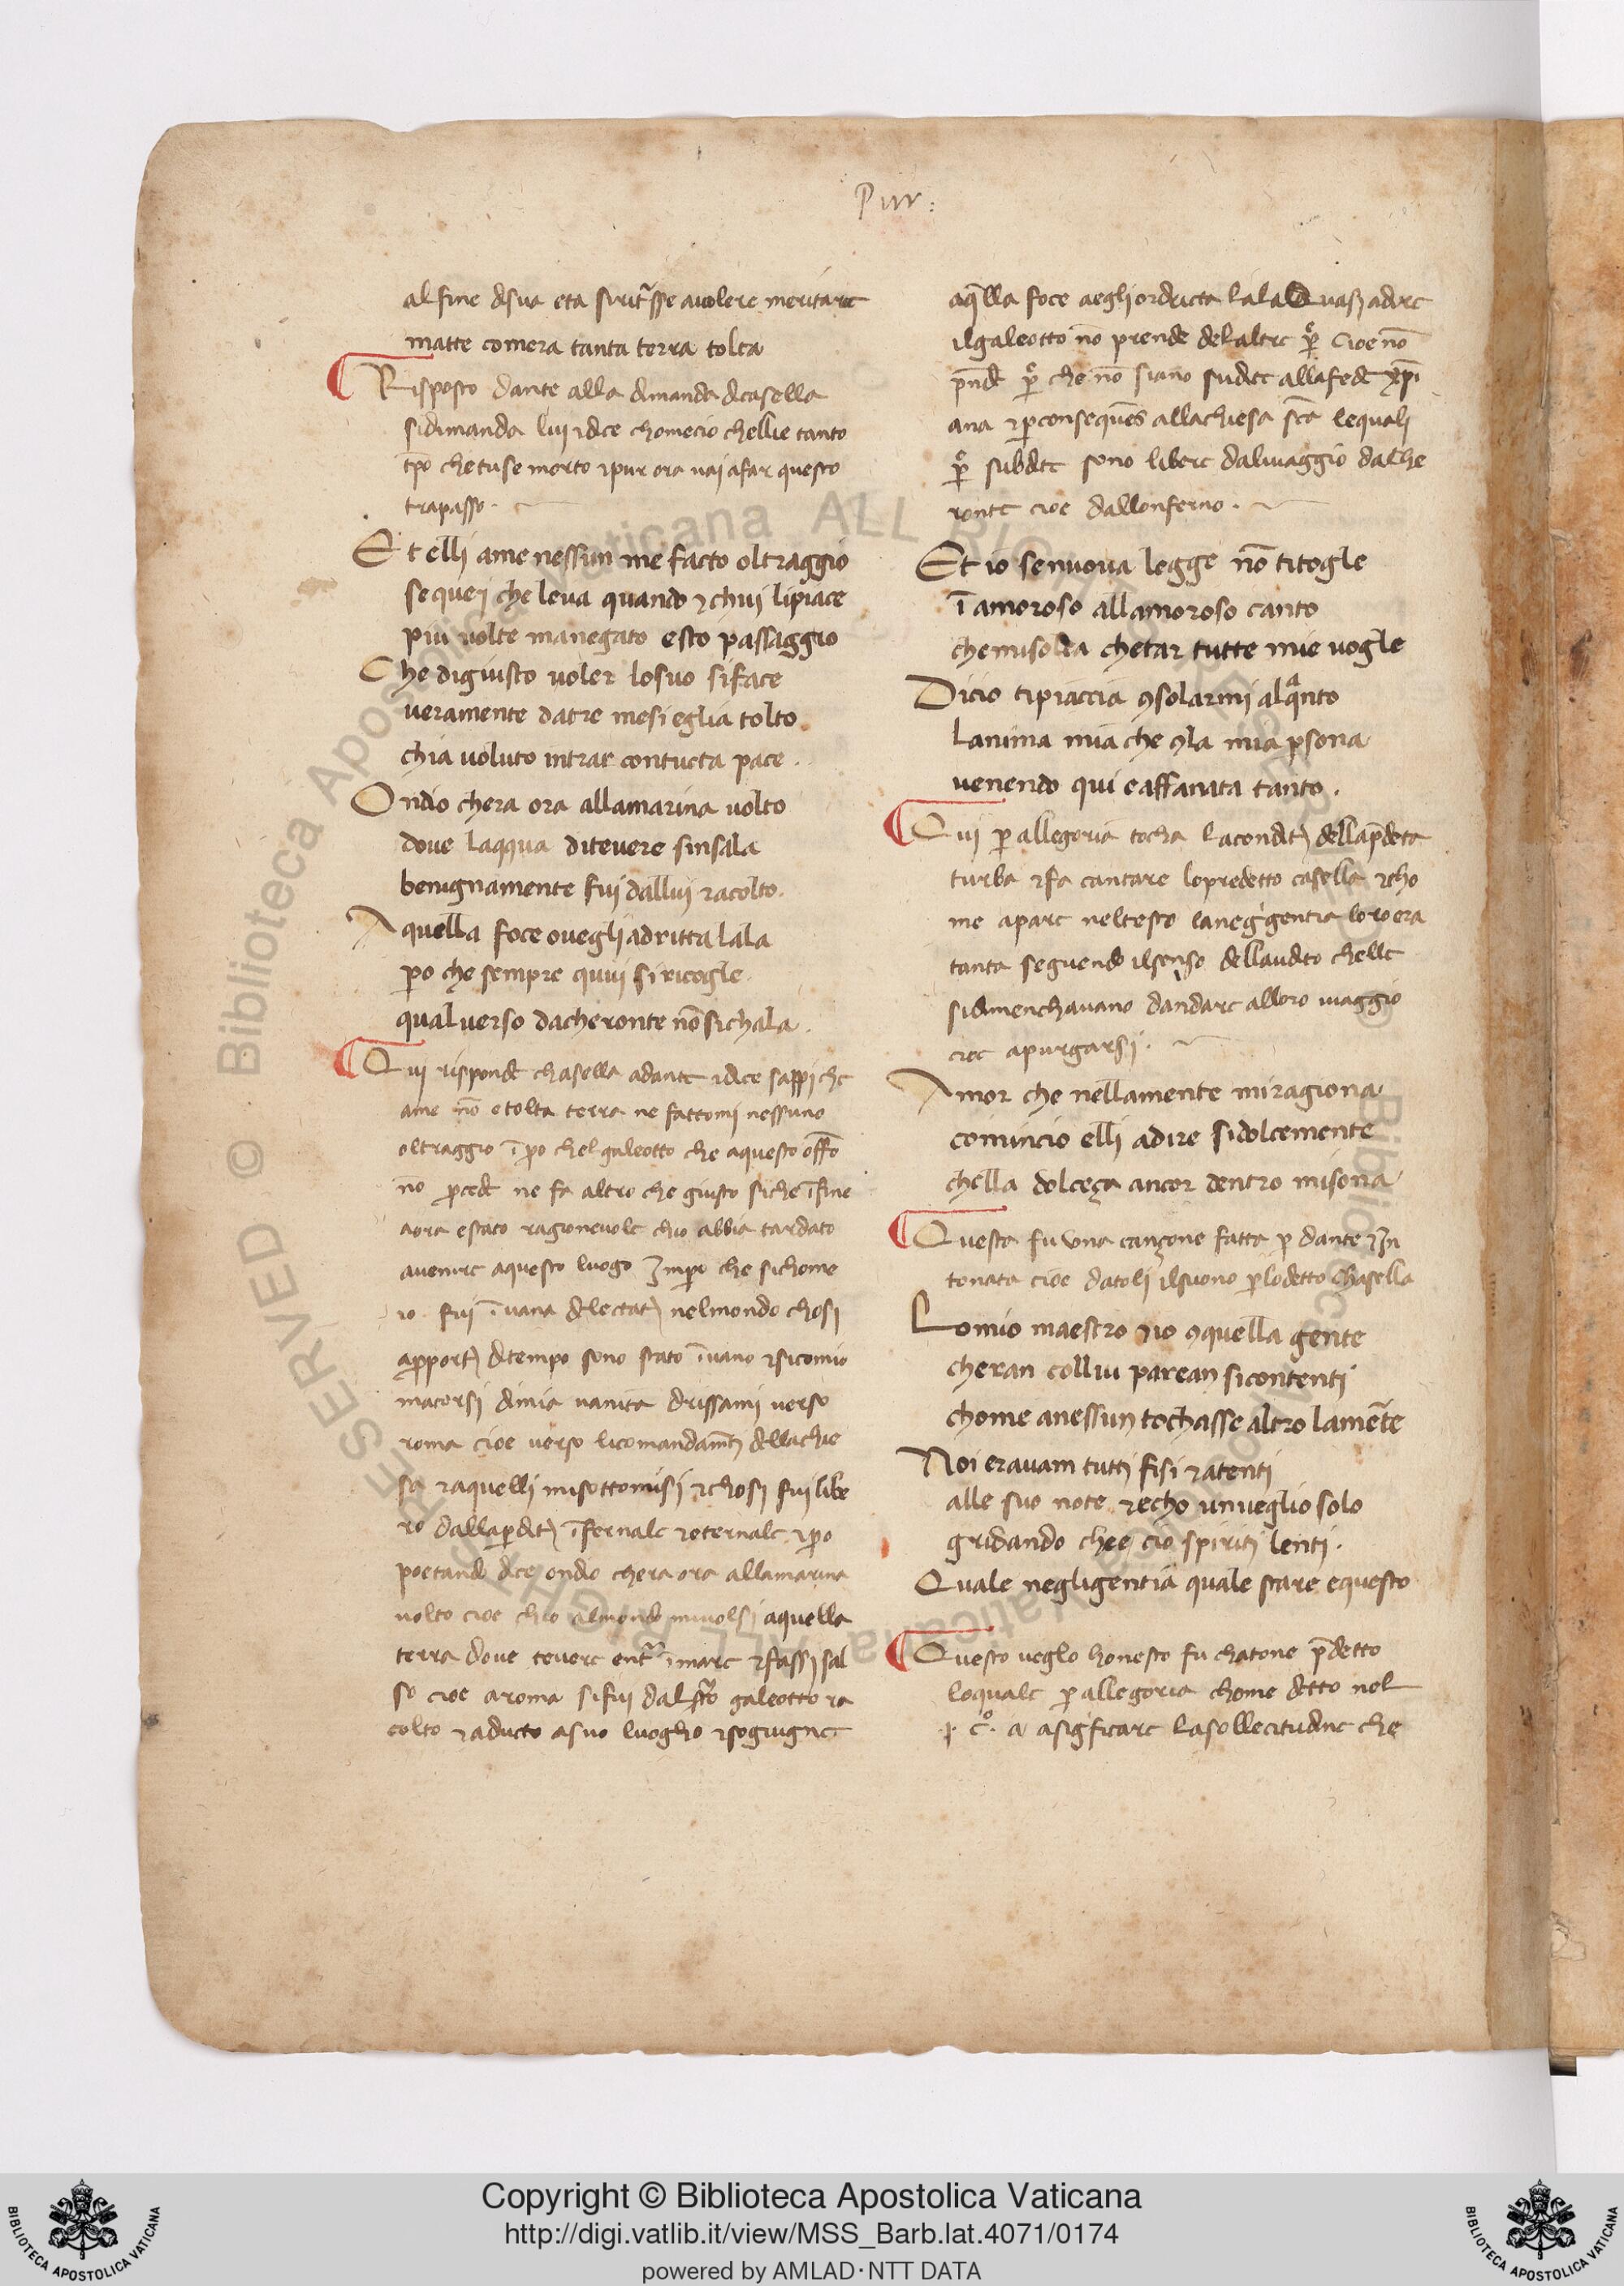 Pur:
al fine dsua eta
matte comera tanta terra tolta
Risposto dante alla dimanda dcasella
sidimanda lui ⁊dice chomecio chellie tanto
tp̄o chetuse morto ⁊pur ora vai afar questo
trapasso.
Et elli ame nessun me facto oltraggio
sequei che leva quando ⁊chui lipiace
piu volte manegato esto passaggio
Che digiusto voler losuo siface
veramente datre mesi eglia tolto
chia voluto intrar contucta pace.
Ondio chera ora allamarina volto
dove laqqua ditevere sinsala
benignamente fui dallui racolto.
Aquella foce ovegli adritta lala
po che sempre quivi siricogle
qual verso dacheronte nō sichala.
Qui rispond chasella adante ⁊dice sappi che
ame nō etolta terra ne fattomi nessuno
oltraggio ī po chel galeotto che aquesto
no pcede ne fa altro che giusto siche īfine
aora estato ragionevole chio abbia tardato
avenire aquesto luogo Imper che sichome
io fui ī vana nelmondo chosi
dtempo sono stato īvano ⁊sicomio
macorsi dmia vanita drissami verso
roma cioe verso dllachie
sa ⁊aquelli misottomisi ⁊chosi fui libe
ro īfernale ⁊eternale ⁊po
poetando dice ondio chera ora allamarina
volto cioe chio almondo mivolsi aquella
terra dove tevere īmare ⁊fassi sal
so cioe aroma sifui galeotto ra
colto ⁊aducto asuo luogho ⁊sogiugne
aq̄lla foce aeglior dricta lala Quasi adire
ilgaleotto nō prende delaltre Cioe nō
che nō siano sudite allafede xp̄i
ana allachiesa sc̄a lequali
subdite sono libere dalviaggio dache
ronte cioe dallonferno.
Et io senuova legge nō titogle
ī amoroso allamoroso canto
chemisolea chetar tutte mie vogle
Dicio tipiaccia ꝯsolarmi alqᵃnto
lanima mia che ꝯla mia psona
venendo qui eaffanata tanto.
Qui p allegoria tocha
turba ⁊fa cantare lopredetto casella ⁊cho
me apare neltesto loro era
tanta seguendo ilsenso dellaudito chelle
sidimenchavano dandare alloro viaggio
cioe apurgarsi.
Amor che nellamente miragiona
comincio elli adire sidolcemente
chella dolceça ancor dentro misona
Questa fu una cançone fatta p dante ⁊In
tonata cioe datoli ilsuono plodetto chasella
Lomio maestro ⁊io ꝯquella gente
cheran collui parean sicontenti
chome anessun tochasse altro lamēte
Noi eravam tutti fisi ⁊atenti
alle suo note ⁊echo unveglio solo
gridando chee cio spiriti lenti.
Quale negligentia quale stare equesto
Questo veglo honesto fu chatone p̄detto
loquale p allegoria chome detto nel
lasollecitudine che
Copyright © Biblioteca Apostolica Vaticana
http://digi.vatlib.it/view/MSS_Barb.lat.4071/0174
powered by AMLAD·NTT DATA
BIBLIOTECA APOSTOLICA VATICANA
BIBLIOTECA APOSTOLICA VATICANA